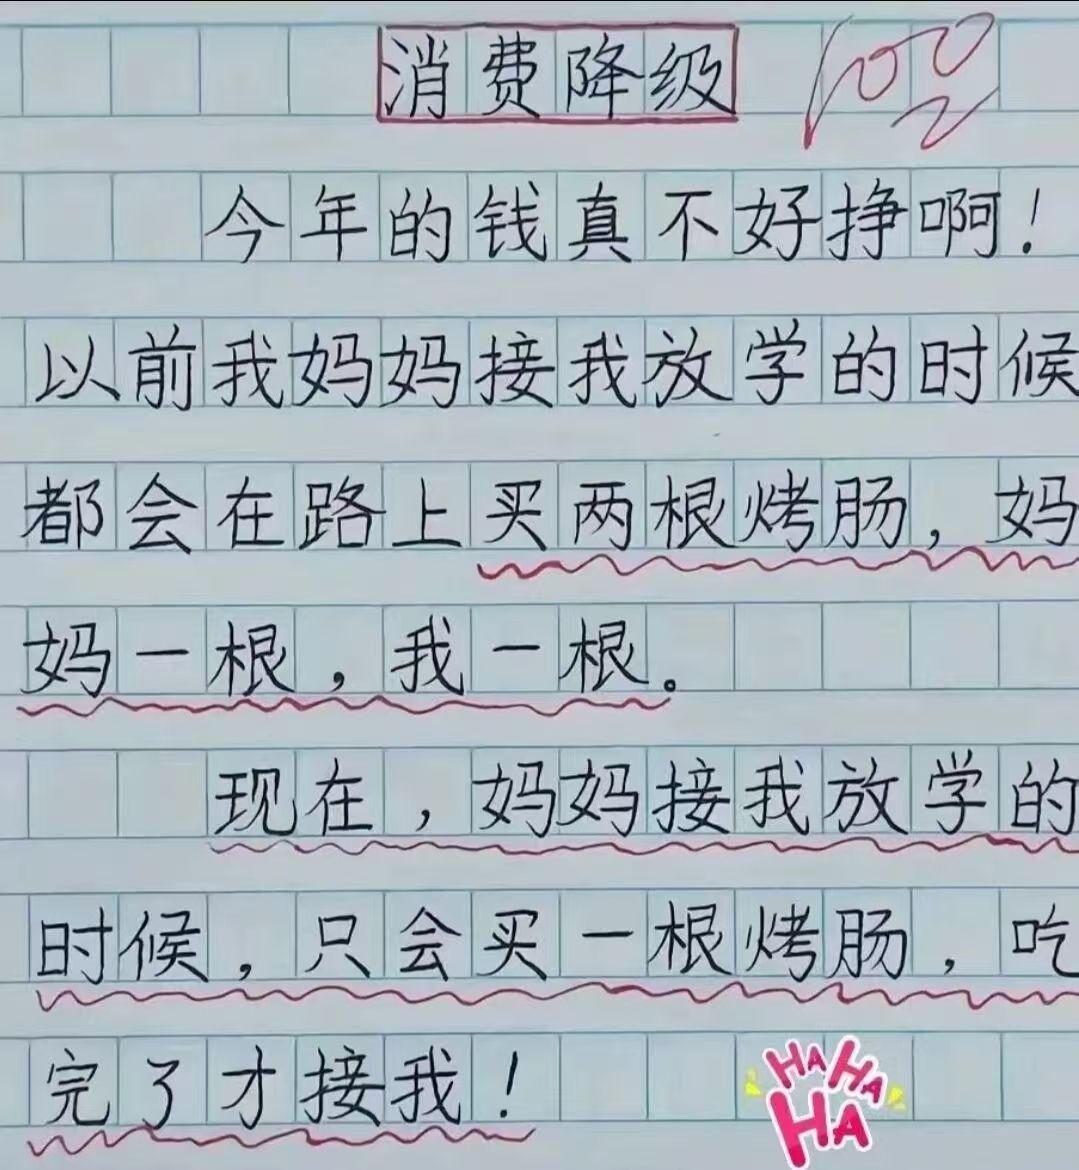 消费降级
100
今年的钱真不好挣啊！
以前我妈妈接我放学的时候
都会在路上买两根烤肠，妈
妈一根，我一根。
现在，妈妈接我放学的
时候，只会买一根烤肠，吃
完了才接我！
HAHA
HA